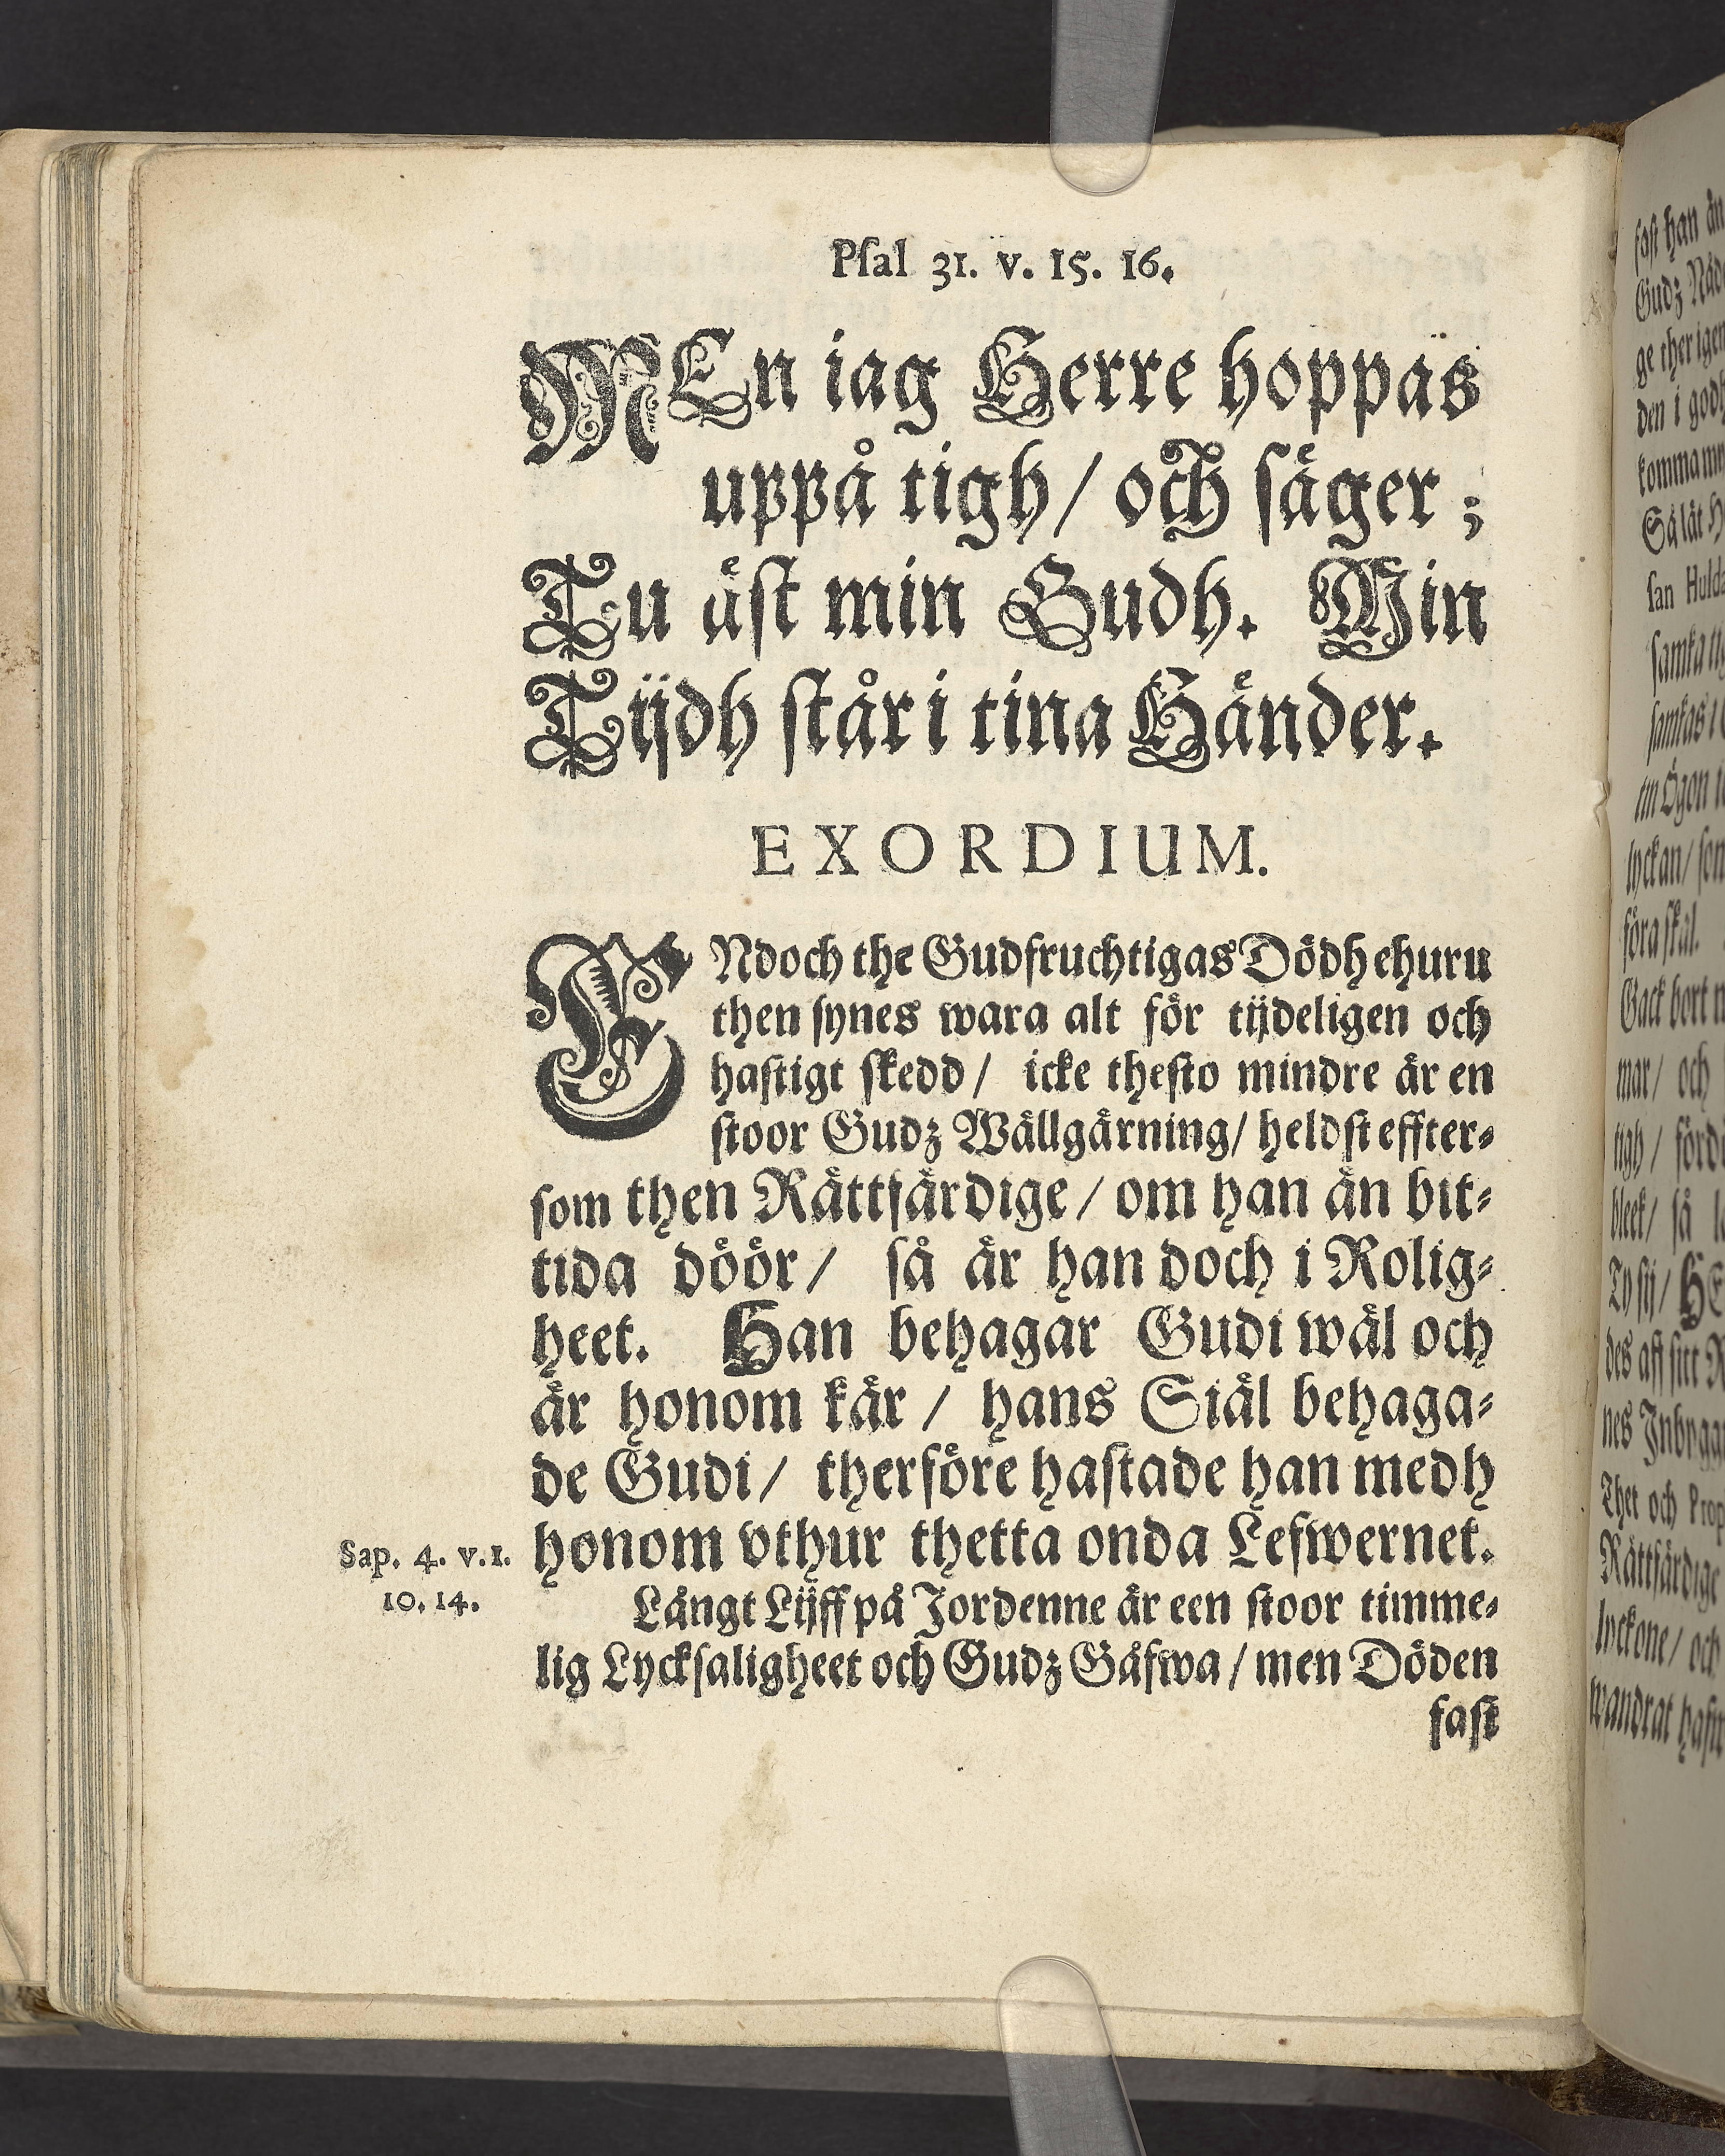 Psal 31. v. 15. 16.
MEn iag Herre hoppas
uppå tigh / och säger ;
Tu äst min Gudh. Min
Tijdh står i tina Händer.
EXORDIUM.
ENdoch the Gudfruchtigas Dödh ehuru
then synes wara alt för tijdeligen och
hastigt skedd / icke thesto mindre är en
stoor Gudz Wällgärning / heldst effter-
som then Rättfärdige / om han än bit-
tida döör / så är han doch i Rolig-
heet. Han behagar Gudi wäl och
är honom kär / hans Siäl behaga-
de Gudi / therföre hastade han medh
honom vthur thetta onda Lefwernet.
Sap. 4. v. 1.
10. 14.
Långt Lijff på Jordenne är een stoor timme-
lig Lycksaligheet och Gudz Gåfwa / men Döden
fast
fast han än
Gudz Nåd
ge ther igen
den i godh
komma
Så lät H
san Huld
samka
samkas i
tin Ögon
lyckan / som
föra skäl.
Gack bort
mar / och
tigh / förd
bleek / så
Ty sij / HE
des aff sitt R
nes Inbygg
Thet och Prop
Rättfärdige
lyckone / och
wandrat hafw